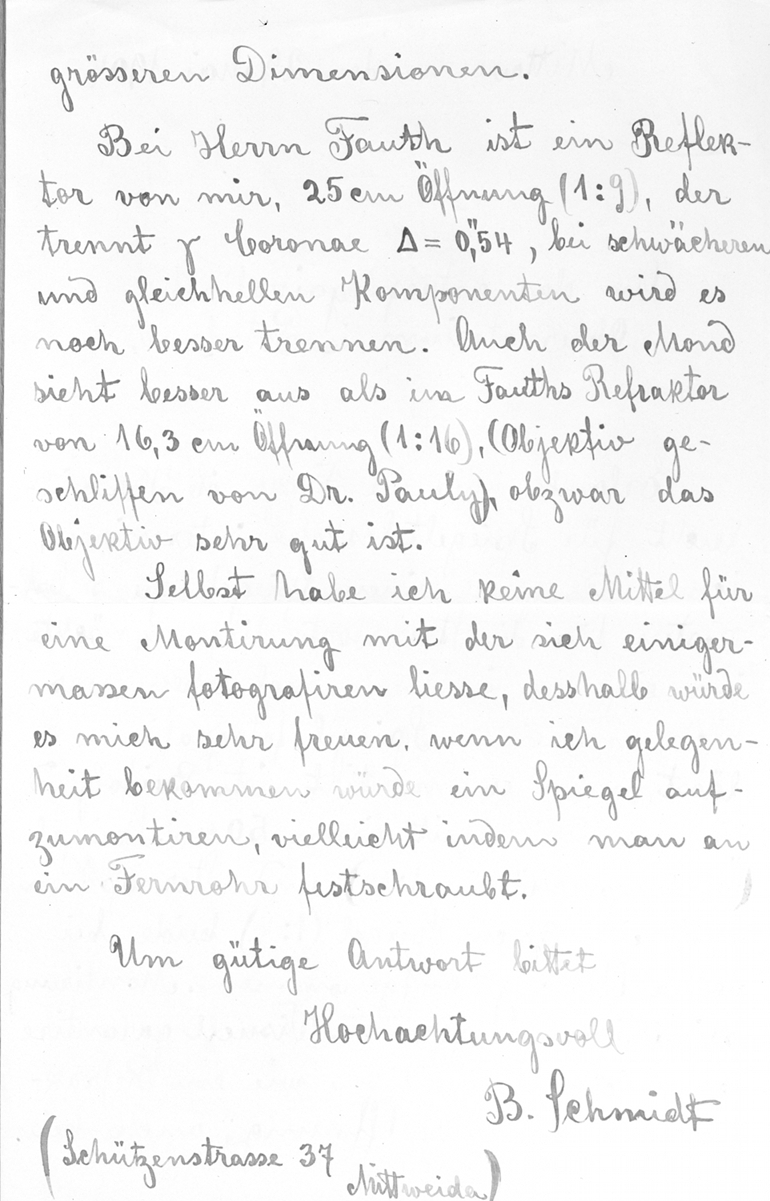 grösseren Dimensionen.
Bei Herrn Fauth ist ein Reflek-
tor von mir, 25 cm Öffnung (1:9), der
trennt γ Coronae Δ = 0,"54, bei schwächeren
und gleichhellen Komponenten wird es
noch besser trennen. Auch der Mond
sieht besser aus als im Fauths Refraktor
von 16,3 cm Öffnung (1:16), (Objektiv ge-
schliffen von Dr. Pauly), obzwar das
Objektiv sehr gut ist.
Selbst habe ich keine Mittel für
eine Montirung mit der sich einiger-
massen fotografiren liesse, desshalb würde
es mich sehr freuen, wenn ich gelegen-
heit bekommen würde ein Spiegel auf-
zumontiren, vielleicht indem man an
ein Fernrohr festschraubt.
Um gütige Antwort bittet
Hochachtungsvoll
B. Schmidt
(Schützenstrasse 37
Mittweida)